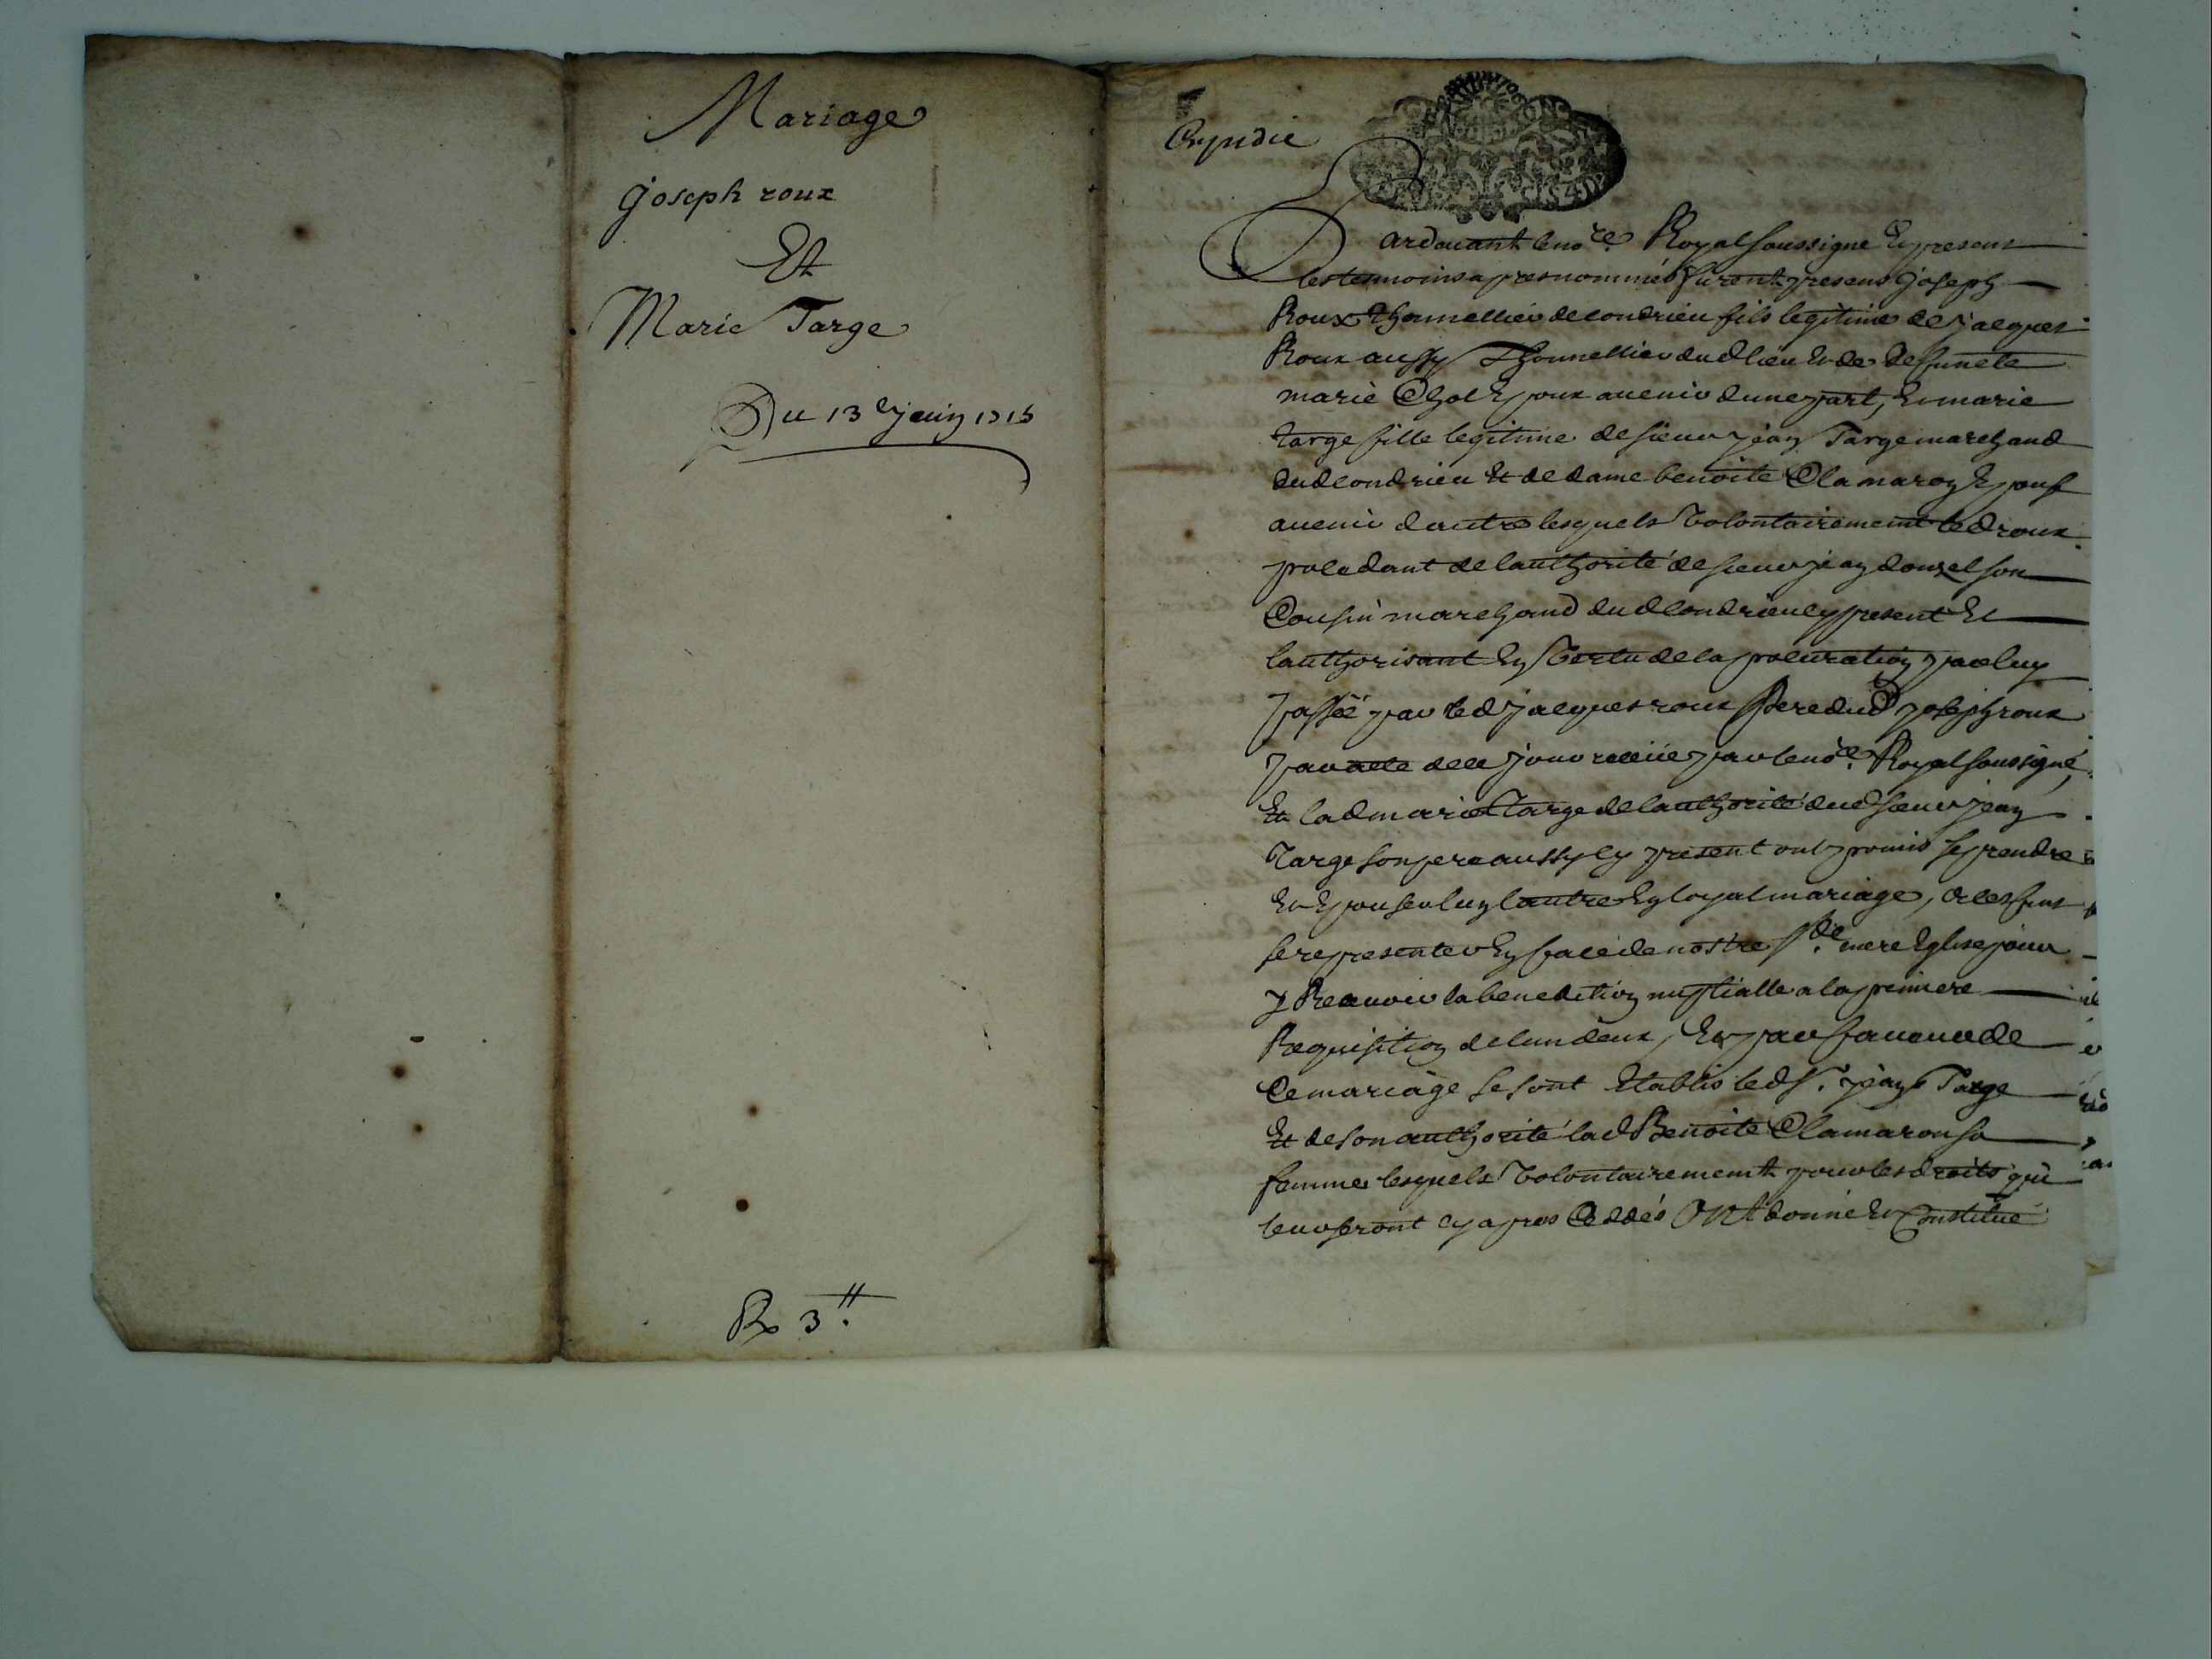 Mariage
joseph roux
Et
Marie Targe
Du 13e juin 1715
R 3 ll
Expedie
Pardevant le nore Royal soussigne Et presens
les temoins apres nommés furent presens joseph
Roux thonnellier de condrieu fils legitime de jacques
Roux aussy Thonnellier dud lieu et de deffuncte
marie Chol Epoux avenir dune part, Et marie
targe fille legitime de sieur jean Targe marchand
dud condrieu Et de dame benoite Clamaron Epouse
avenir dautre lesquels volontairement led roux
procedant de lauthorité de sieur jean donzel son
Cousin marchand dud condrieu cy present Et
lauthorisant En vertu de la procuration a luy
passée par led jacques roux Pere dud joseph roux
par acte de ce jour receüe par le nore Royal soussigné,
Et lad marie Targe de lauthorité dud sieur jean
Targe son pere aussy cy present ont promis se prendre
Et Epouser lun lautre En loyal mariage, a ces fins
se representer En face de nostre Ste mere Eglise pour
y Recevoir la benediction nuptialle a la premiere
Requisition de lun deux, Et par faveur de
Ce mariage se sont Etablis led Sr. jean Targe
Et de son authorité lad Benoite Clamaron sa
femme lesquels volontairement pour les droits qui
leur seront cy apres Ceddés Ont donné Et Constitué